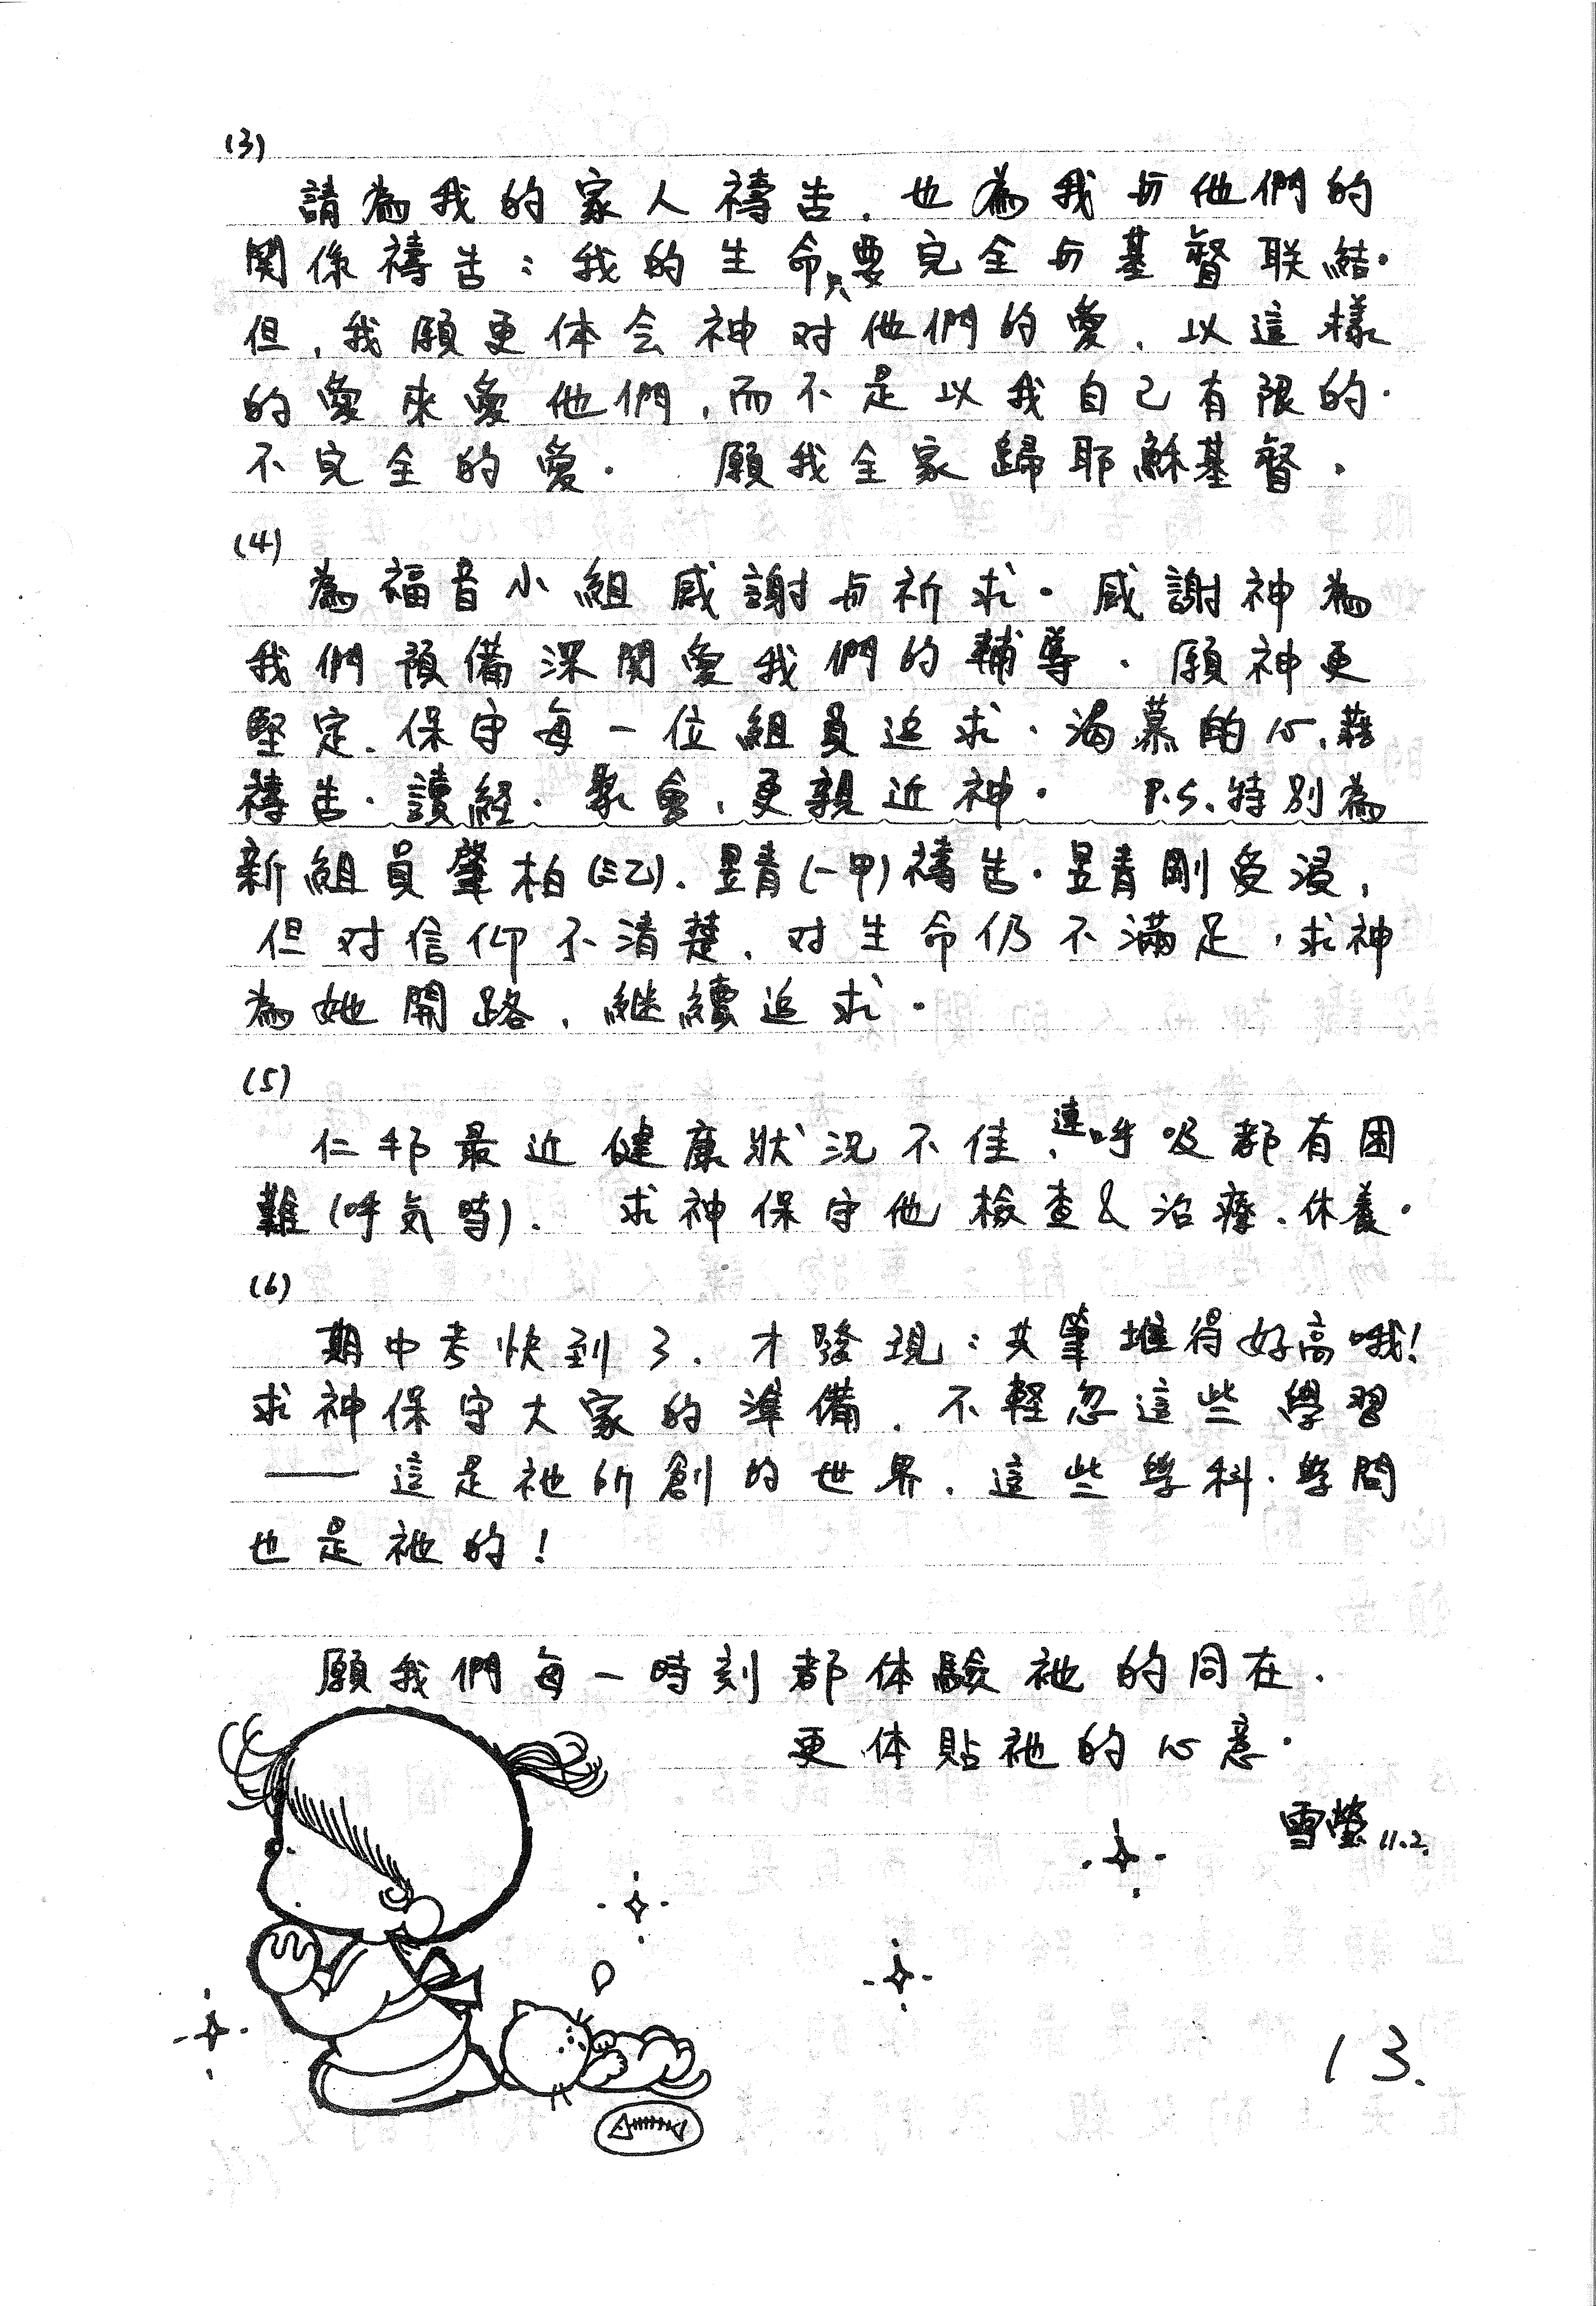 (3)
請為我的家人禱告、也為我与他們的
関係禱告：我的生命只要完全与基督联結。
但，我願更体会神对他們的愛、以這樣
的愛來愛他們，而不是以我自己有限的、
不完全的愛。 願我全家歸耶穌基督。
(4)
為福音小組感謝与祈求。感謝神為
我們預備深関愛我們的輔導。願神更
堅定、保守每一位組員追求、渴慕的心，藉
禱告、讀経、聚會，更親近神。 P.S.特別為
新組員肇柏(三乙)、昱青(一甲)禱告。昱青剛受浸，
但对信仰不清楚、对生命仍不滿足，求神
為她開路、継續追求。
(5)
仁邦最近健康狀況不佳，連呼吸都有困
難(呼気時)。 求神保守他檢查&治療、休養。
(6)
期中考快到了、才發現：共筆堆得好高哦！
求神保守大家的準備，不輕忽這些學習
——這是祂所創的世界，這些學科、學問
也是祂的！
願我們每一時刻都体驗祂的同在，
更体貼祂的心意。
雪瑩 11.2.
13.